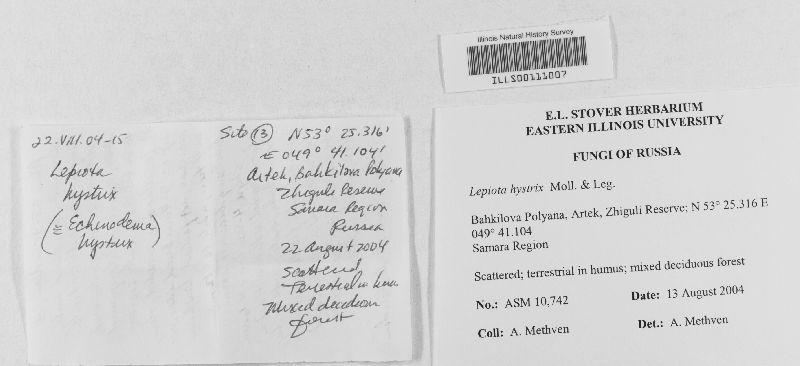 Illinois Natural History Survey
ILLS00111007
22.VIII.04-15
Lepiota
hystrix
(≡ Echinoderma
hystrix)
Site (13) N53° 25.316'
E 049° 41.104'
Artek, Bahkilova Polyana
Zhiguli Reserve
Samara Region
Russia
22 August 2004
Scattered
Terrestrial in humus
Mixed deciduous
forest
E.L. STOVER HERBARIUM
EASTERN ILLINOIS UNIVERSITY
FUNGI OF RUSSIA
Lepiota hystrix Moll. & Leg.
Bahkilova Polyana, Artek, Zhiguli Reserve; N 53° 25.316 E
049° 41.104
Samara Region
Scattered; terrestrial in humus; mixed deciduous forest
No.: ASM 10,742 Date: 13 August 2004
Coll: A. Methven Det.: A. Methven